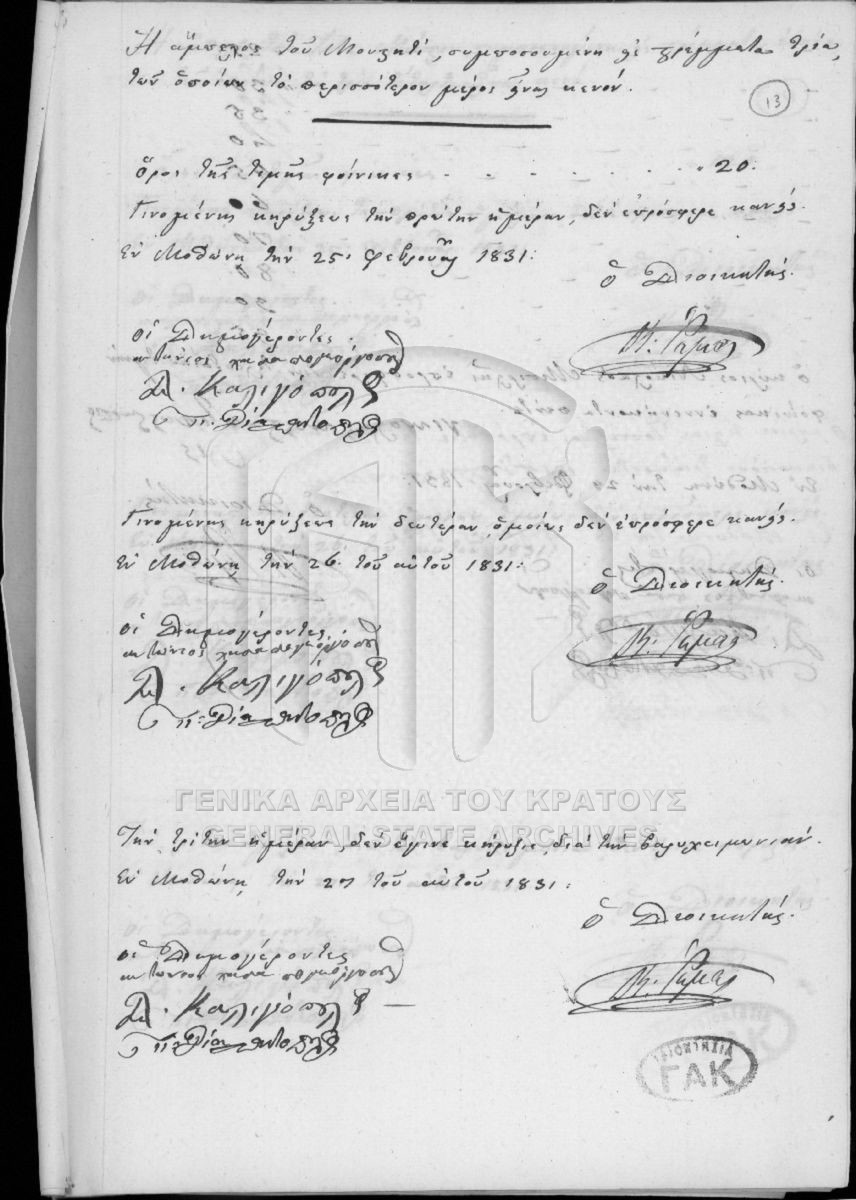 Ἡ ἄμπελος τοῦ Μουχητί, συμποσουμένη εἰς στρέμματα τρία,
τῶν ὁποίων τὸ περισσότερον μέρος εἶναι κενόν.
13
ὅρος τῆς τιμῆς φοίνικες - - - - - - - " 20:
Γινομένης κηρύξεως τὴν πρώτην ἡμέραν, δὲν ἐπρόσφερε κανείς.
Ἐν Μοθώνῃ τὴν 25 Φεβρουαρ 1831:
ὁ Διοικητής.
οἱ Δημογέροντες.
Καλιγόπουλος
Π: Διαμαντόπουλος
Γινομένης κηρύξεως τὴν δευτέραν, ὁμοίως δὲν ἐπρόσφερε κανείς.
Ἐν Μοθώνῃ τὴν 26. τοῦ αὐτοῦ 1831:
ὁ Διοικητής.
οἱ Δημογέροντες.
Καλιγόπουλος
Π: Διαμαντόπουλος
ΓΕΝΙΚΑ ΑΡΧΕΙΑ ΤΟΥ ΚΡΑΤΟΥΣ
GENERAL STATE ARCHIVES
Τὴν τρίτην ἡμέραν, δὲν ἔγινε κήρυξις, διὰ τὴν βαρυχειμωνιάν.
Ἐν Μοθώνῃ τὴν 27 τοῦ αὐτοῦ 1831:
ὁ Διοικητής.
οἱ Δημογέροντες
Καλιγόπουλος
Π: Διαμαντόπουλος
ΓΑΚ